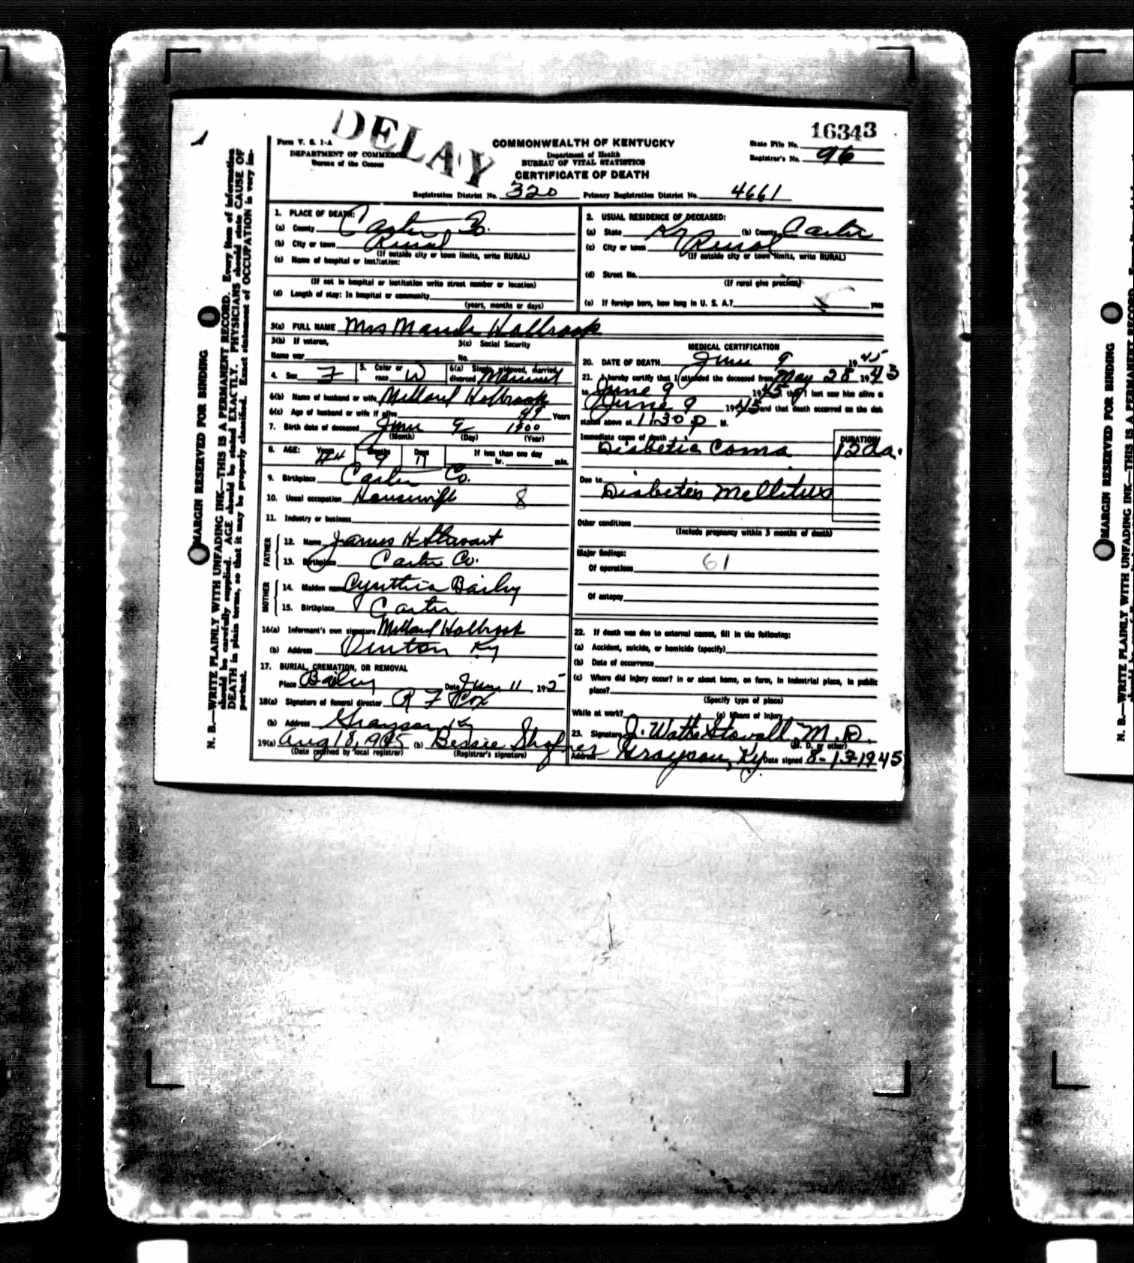 DELAY
Form V. S. 1-A
DEPARTMENT OF COMMERCE
Bureau of the Census
COMMONWEALTH OF KENTUCKY
Department of Health
BUREAU OF VITAL STATISTICS
CERTIFICATE OF DEATH
16343
State File No.
Registrar's No. 96
Registration District No. 320 Primary Registration District No. 4661
1. PLACE OF DEATH:
(a) County Carter Co.
(b) City or town Rural
(If outside city or town limits, write RURAL)
(c) Name of hospital or institution:
(If not in hospital or institution write street number or location)
(d) Length of stay: In hospital or community
(years, months or days)
2. USUAL RESIDENCE OF DECEASED:
(a) State Ky (b) County Carter
(c) City or town Rural
(If outside city or town limits, write RURAL)
(d) Street No.
(If rural give precinct)
(e) If foreign born, how long in U. S. A.? years
3(a) FULL NAME Mrs Maude Holbrook
3(b) If veteran,
Name war
3(c) Social Security
No.
4. Sex F
5. Color or race W
6(a) Single, widowed, married, divorced Married
6(b) Name of husband or wife Millard Holbrook
6(c) Age of husband or wife if alive 49 Years
7. Birth date of deceased June 9 1900
(Month) (Day) (Year)
8. AGE: Years 44 Months 9 Days If less than one day
hr. min.
9. Birthplace Carter Co.
10. Usual occupation Housewife 8
11. Industry or business
FATHER
12. Name James H Stewart
13. Birthplace Carter Co.
MOTHER
14. Maiden name Cynthia Baily
15. Birthplace Carter
16(a) Informant's own signature Millard Holbrook
(b) Address Denton Ky
17. BURIAL, CREMATION, OR REMOVAL
Place Baily Date June 11, 1945
18(a) Signature of funeral director R F Cox
(b) Address Grayson Ky
19(a) Aug 18, 1945 (b) Bessie
(Date received by local registrar) (Registrar's signature)
MEDICAL CERTIFICATION
20. DATE OF DEATH June 9 1945
21. I hereby certify that I attended the deceased from May 28, 1943
to June 9 1945 that I last saw him alive on
June 9 1945 and that death occurred on the date
stated above at 11:30 p M.
Immediate cause of death Diabetic Coma
DURATION
12 da.
Due to Diabetes Mellitus
Other conditions
(Include pregnancy within 3 months of death)
Major findings:
Of operations 61
Of autopsy
22. If death was due to external causes, fill in the following:
(a) Accident, suicide, or homicide (specify)
(b) Date of occurrence
(c) Where did injury occur? in or about home, on farm, in industrial place, in public
place?
(Specify type of place)
While at work? (e) Means of injury
23. Signature J. Watts Stovall, M. D.
(M. D. or other)
Address Grayson, Ky Date signed 8-13-1945
MARGIN RESERVED FOR BINDING
N. B.—WRITE PLAINLY WITH UNFADING INK—THIS IS A PERMANENT RECORD. Every item of information
should be carefully supplied. AGE should be stated EXACTLY. PHYSICIANS should state CAUSE OF
DEATH in plain terms, so that it may be properly classified. Exact statement of OCCUPATION is very im-
portant.
MARGIN RESERVED FOR BINDING
N. B.—WRITE PLAINLY WITH UNFADING INK—THIS IS A PERMANENT